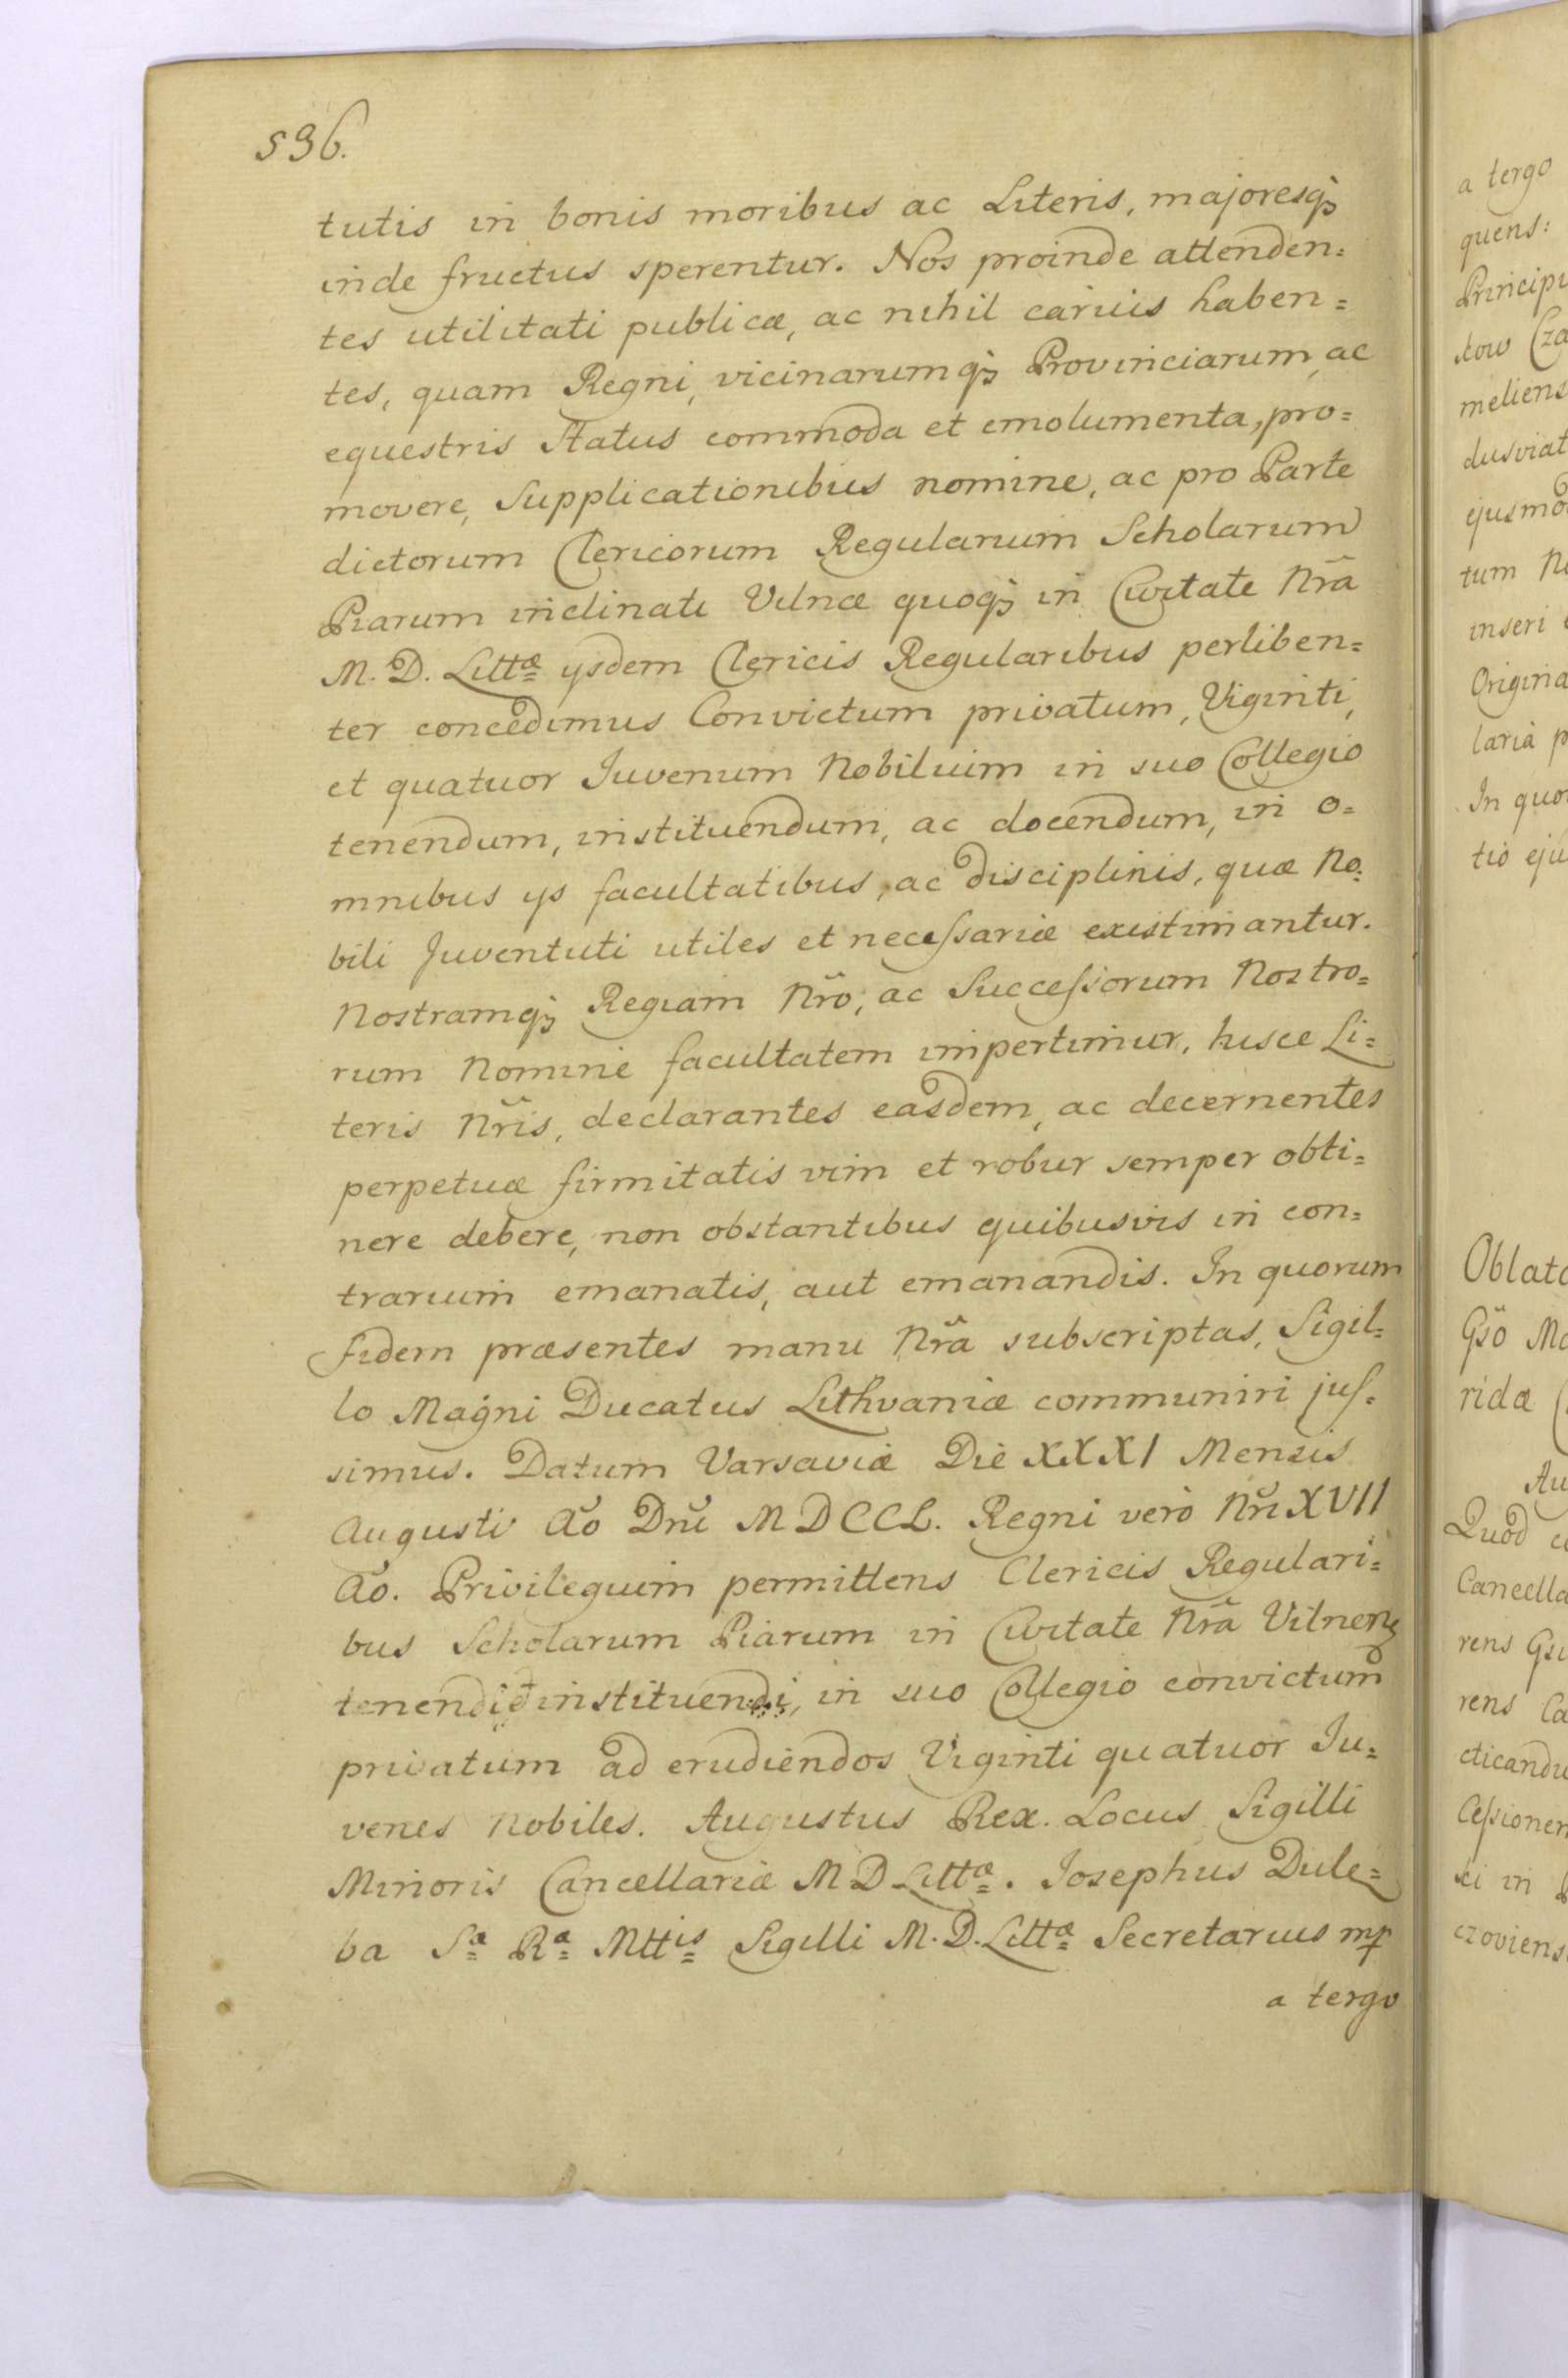 596.
tutis in bonis moribus ac Literis, majoresq;
inde fructus sperentur. Nos proinde attenden=
tes utilitati publicæ, ac nihil carius haben=
tes, quam Regni, vicinarumq; Provinciarum, ac
equestris Status commoda et emolumenta, pro=
movere, Supplicationibus nomine, ac pro Parte
dictorum Clericorum Regularium Scholarum
Piarum inclinati Vilnæ quoq; in Civitate Nrã
M. D. Littæ ysdem Clericis Regularibus perliben=
ter concedimus Convictum privatum, Viginti,
et quatuor Juvenum Nobilium in suo Collegio
tenendum, instituendum, ac docendum, in o=
mnibus ys facultatibus, ac disciplinis, quæ No=
bili Juventuti utiles et necessariæ existimantur.
Nostramq; Regiam Nrõ, ac Successorum Nostro=
rum Nomine facultatem impertimur, hisce Li=
teris Nrĩs, declarantes easdem, ac decernentes
perpetuæ firmitatis vim et robur semper obti=
nere debere, non obstantibus quibusvis in con=
trarium emanatis, aut emanandis. In quorum
fidem præsentes manu Nrã subscriptas, Sigil=
lo Magni Ducatus Lithvaniæ communiri jus=
simus. Datum Varsaviæ Die XXXI Mensis
Augusti Aõ Dnĩ MDCCL. Regni verò Nrĩ XVII
Aõ. Privilegium permittens Clericis Regulari=
bus Scholarum Piarum in Civitate Nrã Vilnens
tenendi et instituendi, in suo Collegio convictum
privatum ad erudiendos Viginti quatuor Ju=
venes Nobiles. Augustus Rex. Locus Sigilli
Minoris Cancellariæ M D Littæ. Josephus Dule=
ba Sæ Ræ Mttis Sigilli M. D. Littæ Secretarius mp
a tergo
a tergo
quens:
Principi
stow Cza
meliens
dusviat
ejusmo
tum N
inseri
Origina
laria p
In quo
tio eju
Oblata
Gsõ Ma
ridæ
Au
Quod
Cancella
rens Gsi
rens Ca
cticandu
Cessionem
sci in
czoviens